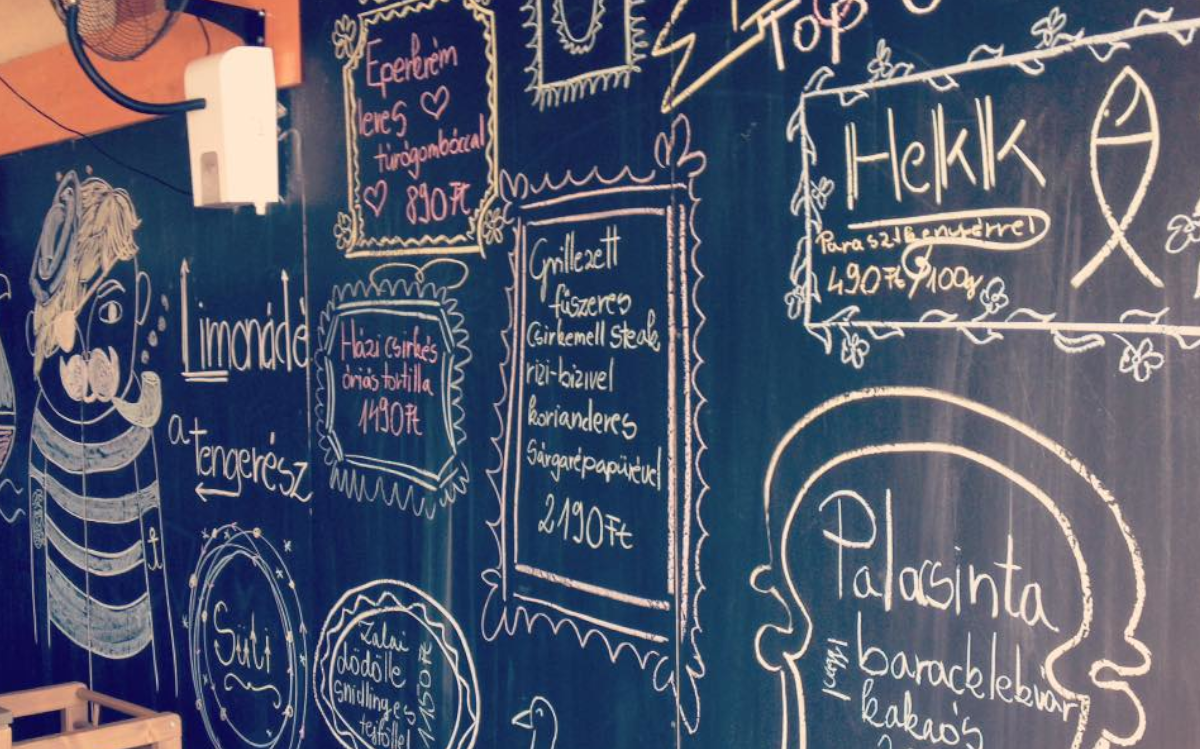 Eperkrém
leves
túrógombóccal
890 Ft
Top
Hekk
Parasztkenyérrel
490 Ft/100g
Limonádé
a tengerész
Házi csirkés
óriás tortilla
1490 Ft
Grillezett
fűszeres
Csirkemell steak
rizi-bizivel
korianderes
Sárgarépapürével
2190 Ft
Süti
Zalai
dödölle
snidlinges
tejföllel
1150 Ft
Palacsinta
baracklekvár
kakaós